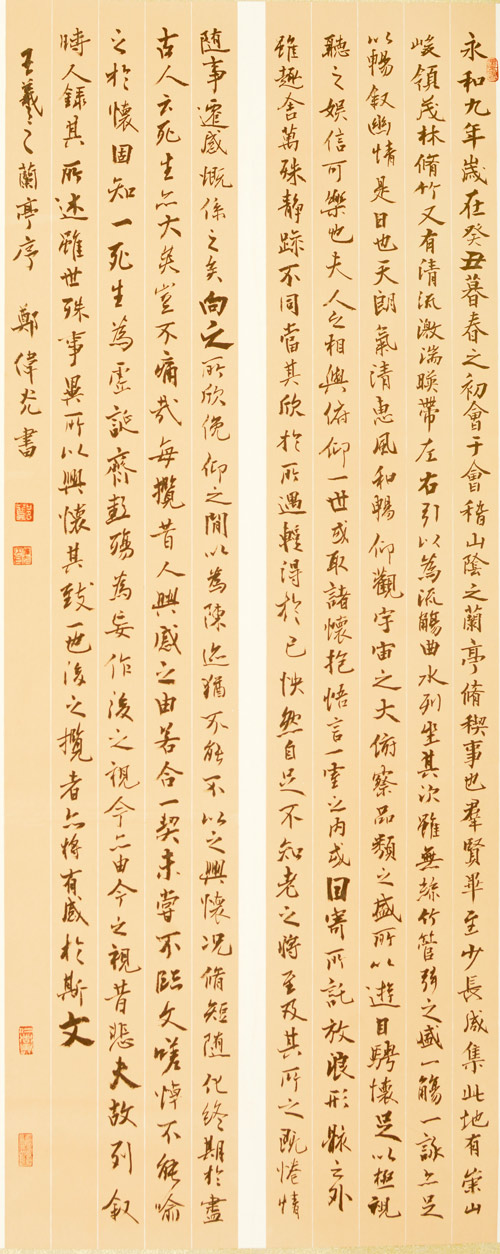 永和九年歲在癸丑暮春之初會于會稽山陰之蘭亭脩稧事也羣賢畢至少長咸集此地有崇山
峻領茂林脩竹又有清流激湍暎帶左右引以為流觴曲水列坐其次雖無絲竹管弦之盛一觴一詠亦足
以暢叙幽情是日也天朗氣清惠風和暢仰觀宇宙之大俯察品類之盛所以遊目騁懷足以極視
聽之娛信可樂也夫人之相與俯仰一世或取諸懷抱悟言一室之内或因寄所託放浪形骸之外
雖趣舍萬殊静躁不同當其欣於所遇輕得於己怏然自足不知老之將至及其所之既惓情
隨事遷感慨係之矣向之所欣俛仰之間以為陳迹猶不能不以之興懷况脩短隨化終期於盡
古人云死生亦大矣豈不痛哉每攬昔人興感之由若合一契未甞不臨文嗟悼不能喻
之於懷固知一死生為虛誕齊彭殤為妄作後之視今亦由今之視昔悲夫故列叙
時人錄其所述雖世殊事異所以興懷其致一也後之攬者亦將有感於斯文
王羲之蘭亭序 鄭偉 書